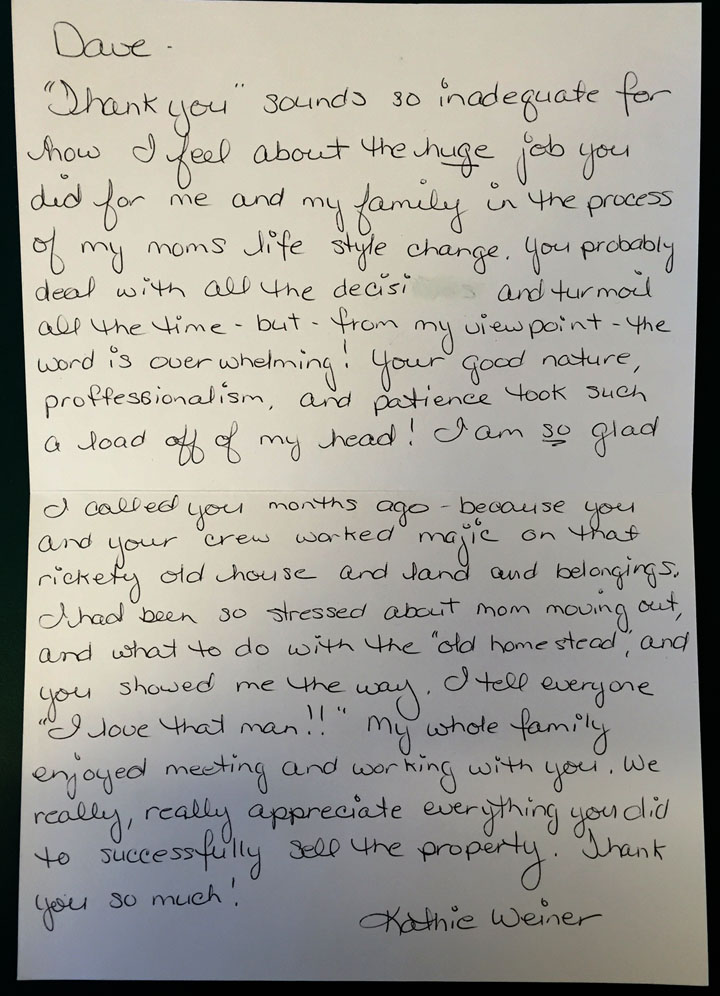 Dave -
"Thank you" sounds so inadequate for
how I feel about the huge job you
did for me and my family in the process
of my moms life style change. You probably
deal with all the decisi and turmoil
all the time - but - from my viewpoint - the
word is overwhelming! Your good nature,
proffessionalism, and patience took such
a load off of my head! I am so glad
I called you months ago - because you
and your crew worked majic on that
rickety old house and land and belongings.
I had been so stressed about mom moving out,
and what to do with the "old homestead", and
you showed me the way. I tell everyone
"I love that man!!" My whole family
enjoyed meeting and working with you. We
really, really appreciate everything you did
to successfully sell the property. Thank
you so much!
Kathie Weiner